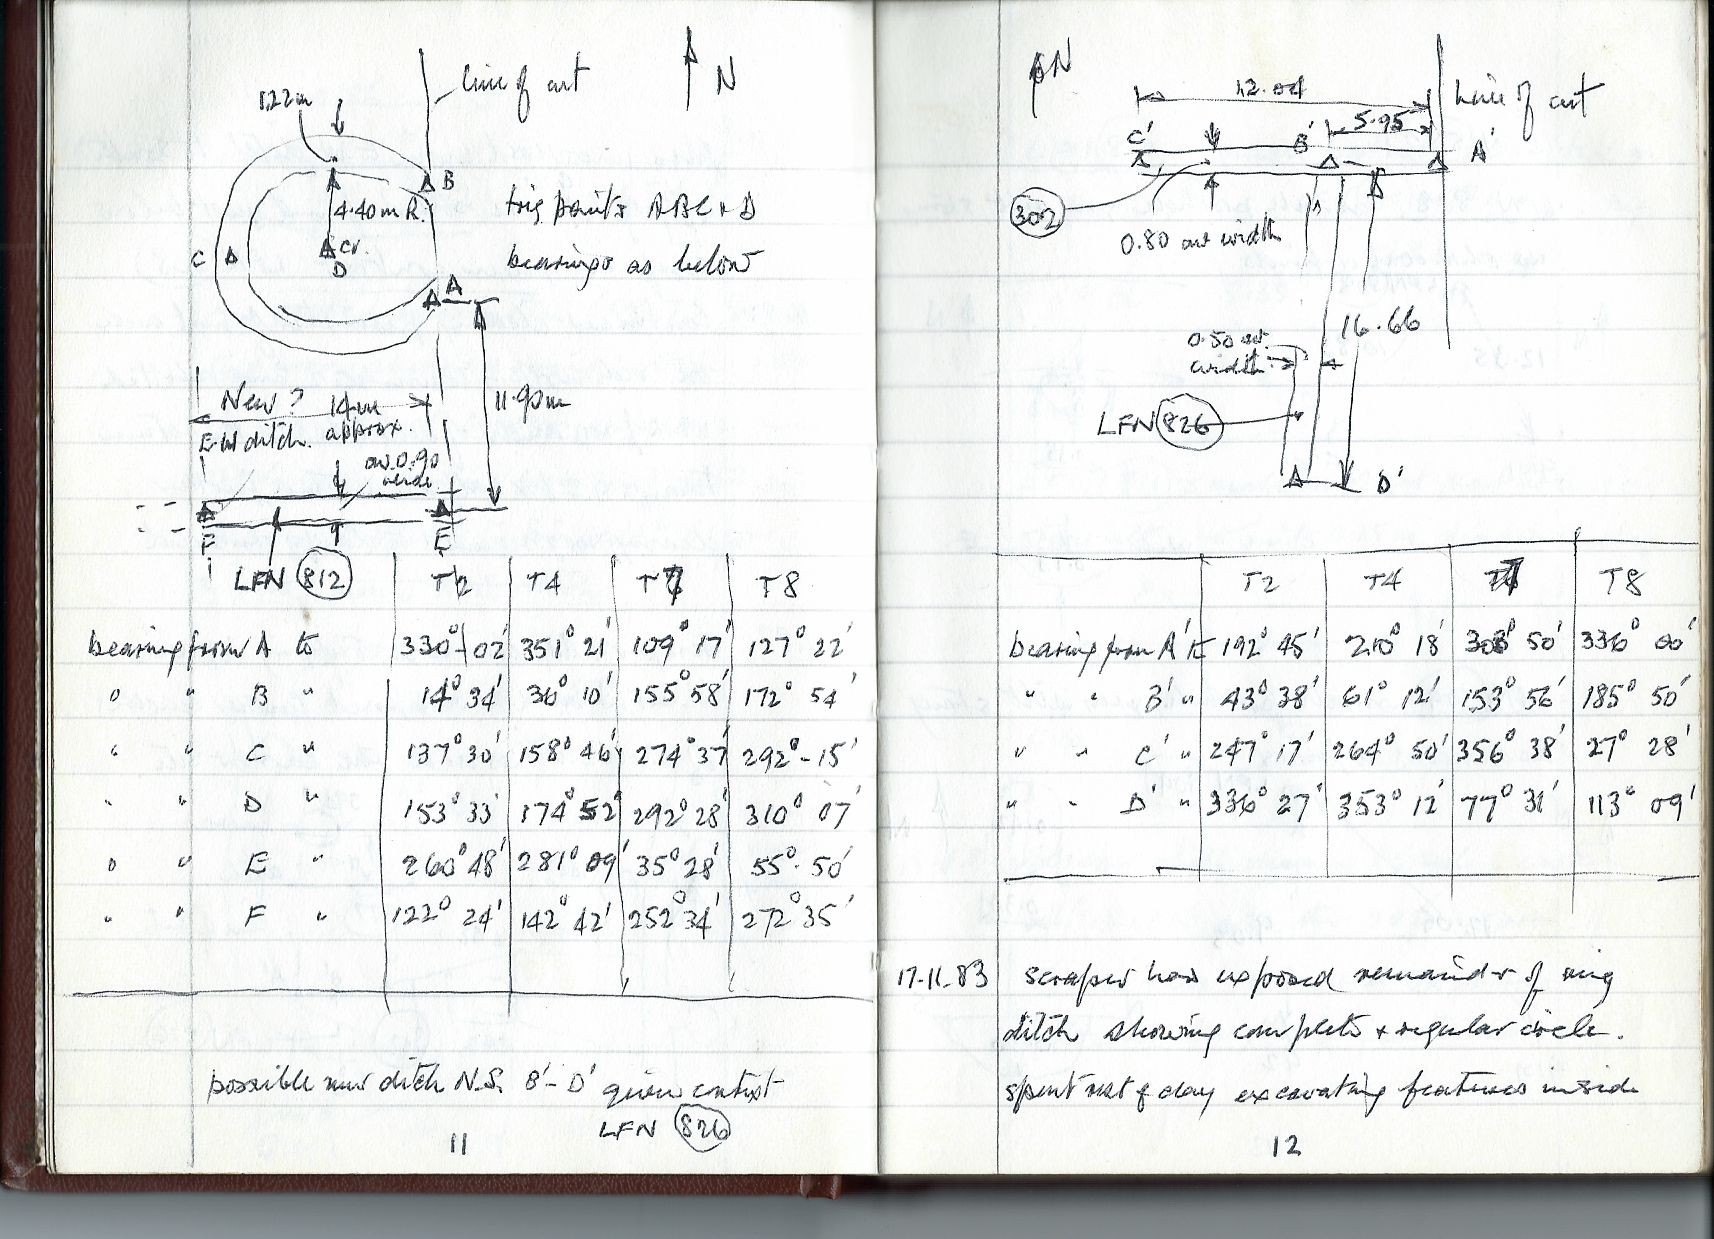 1.22m
line of cut
N
B
4.40m R.
trig points A B C + D
C
Cr.
D
bearings as below
A
New ?
14m
approx.
11.90m
E-W ditch.
av. 0.90
wide
F
E
LFN 812
T2 T4 T7 T8
bearing from A to 330° 02' 351° 21' 109° 17' 127° 22'
" " B " 14° 34' 36° 10' 155° 58' 172° 54'
" " C " 137° 30' 158° 46' 274° 37' 292° - 15'
" " D " 153° 33' 174° 52' 292° 28' 310° 07'
" " E " 260° 48' 281° 09' 35° 28' 55° 50'
" " F " 122° 24' 142° 42' 252° 34' 272° 35'
possible new ditch N.S. B' - D' given context
LFN 826
11
N
12.04
line of cut
5.95
C' B' A'
302
0.80 av width
16.66
0.50 av.
width
LFN 826
D'
T2 T4 T7 T8
bearing from A' to 192° 45' 210° 18' 303° 50' 336° 00'
" " B' " 43° 38' 61° 12' 153° 56' 185° 50'
" " C' " 247° 17' 264° 50' 356° 38' 27° 28'
" " D' " 336° 27' 353° 12' 77° 31' 113° 09'
17.11.83 scraper has exposed remainder of ring
ditch showing complete + regular circle.
spent rest of day excavating features inside
12